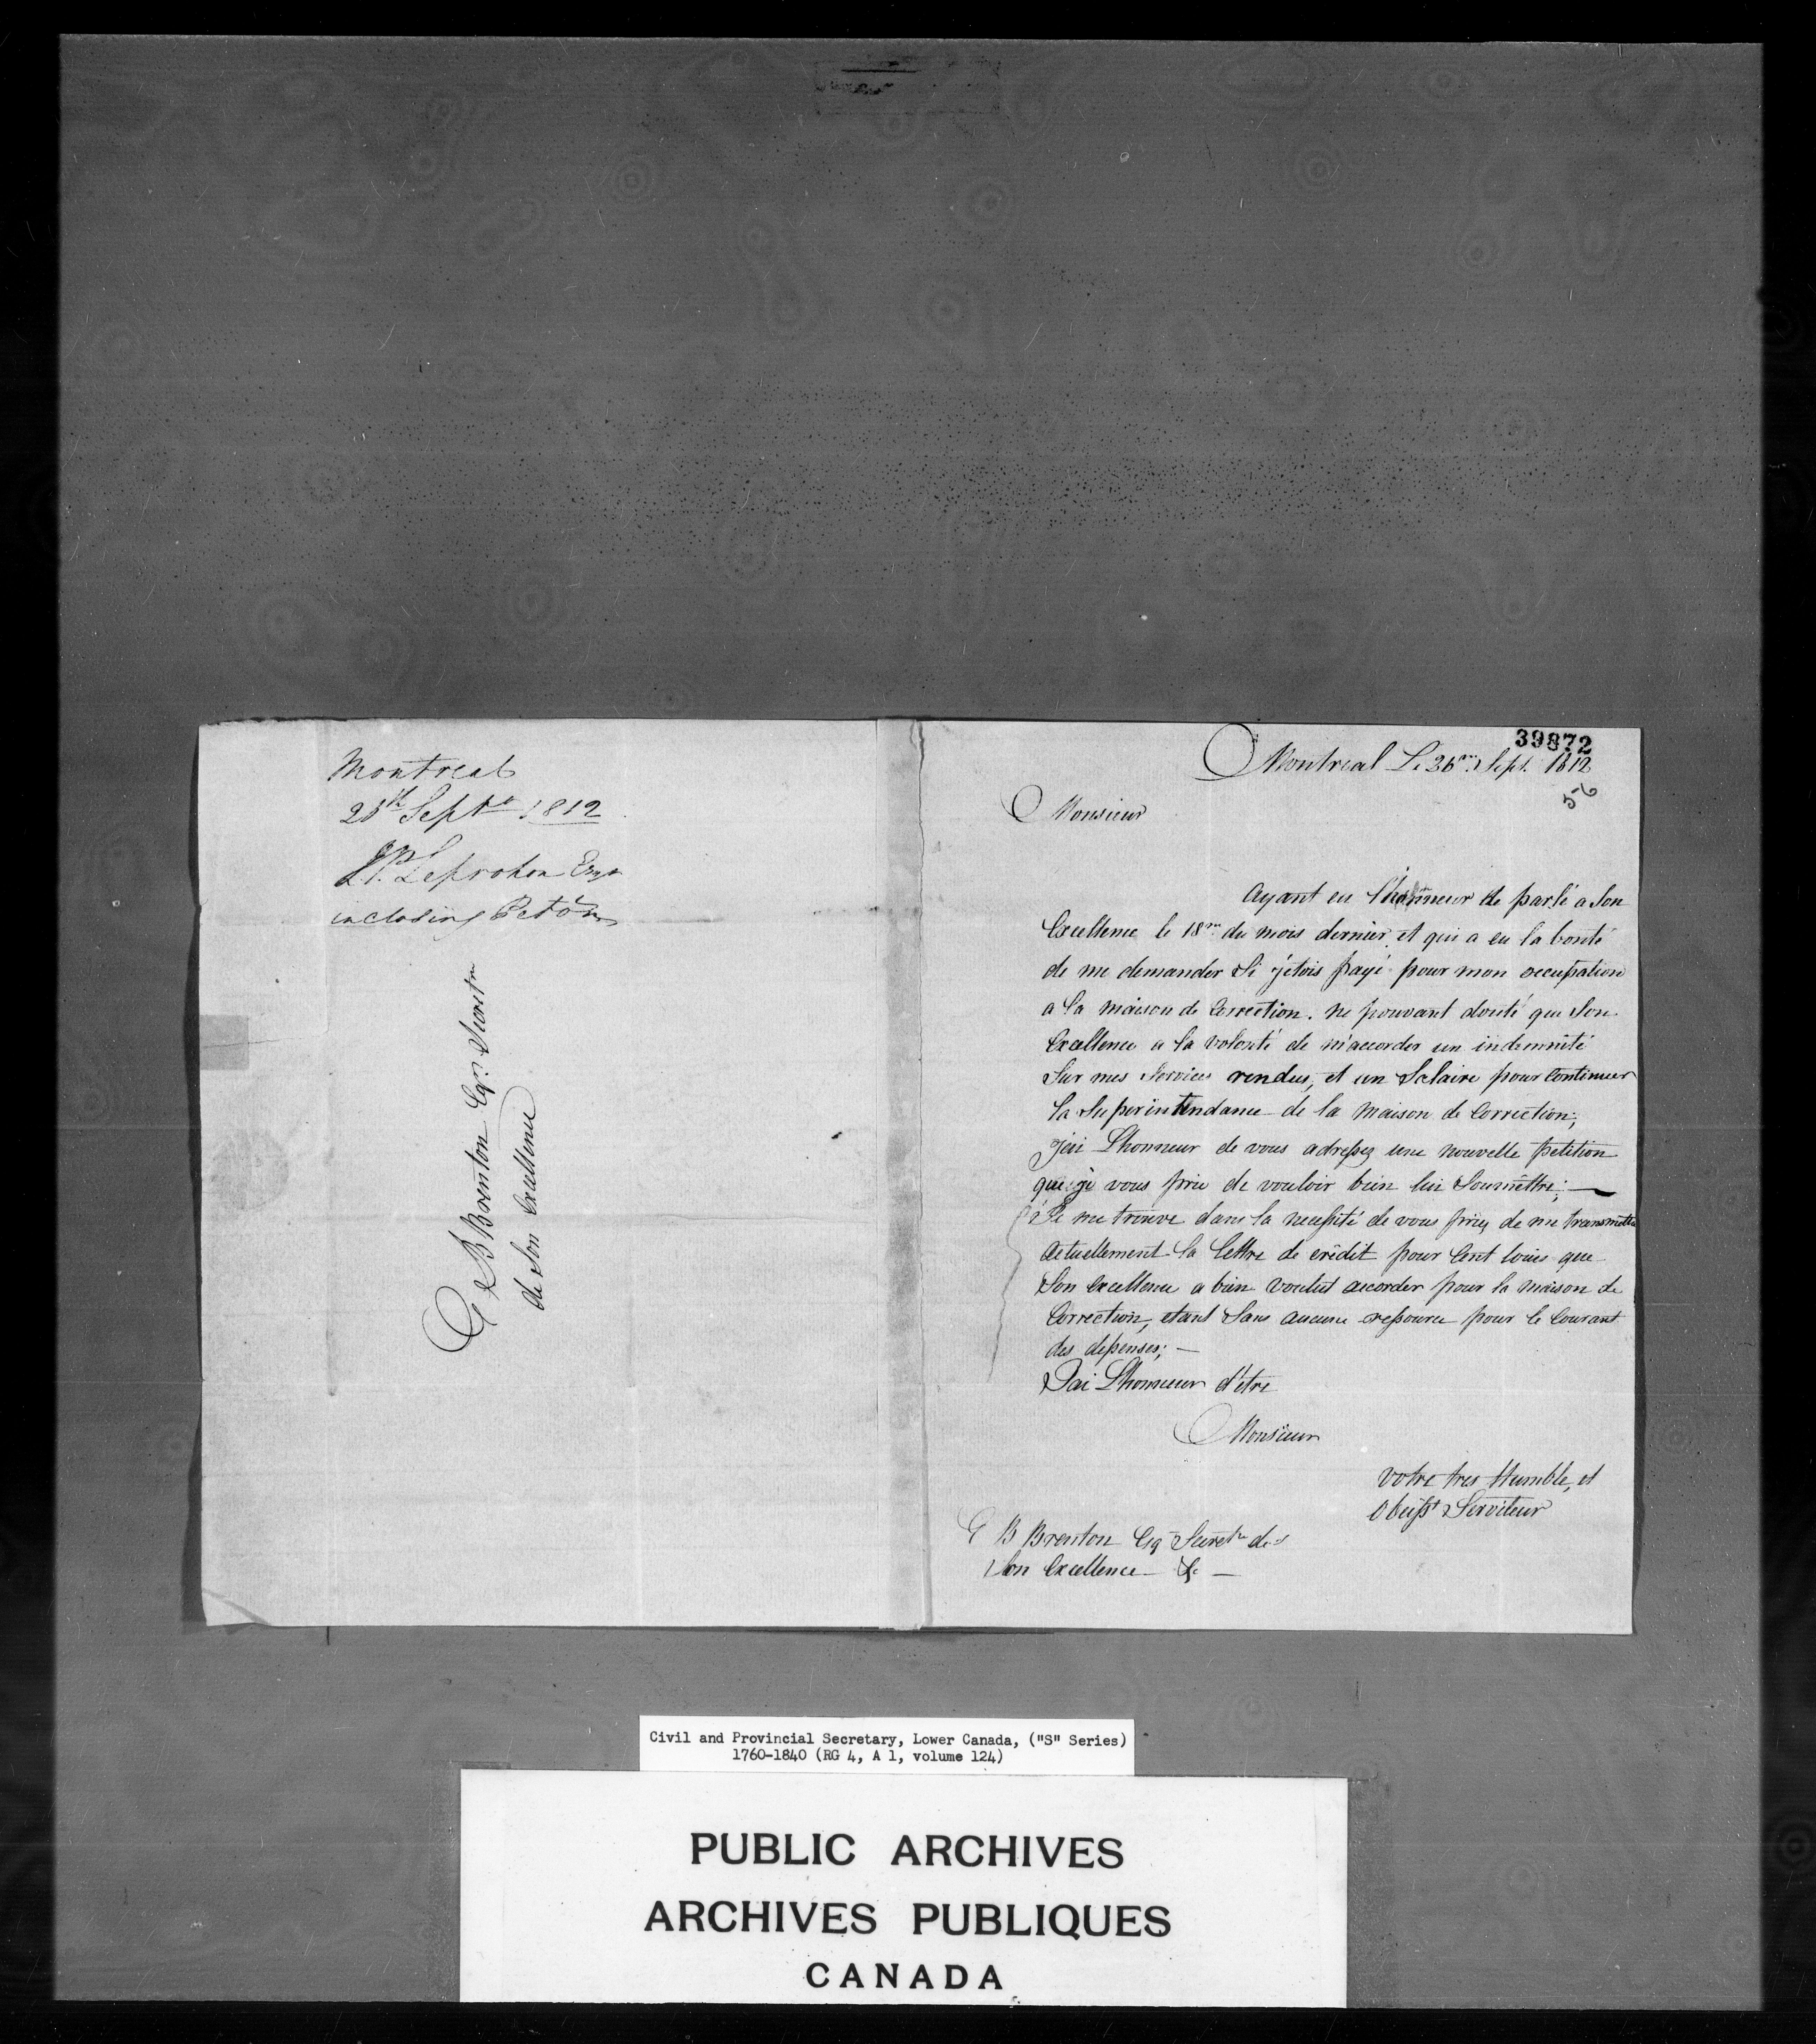 Montreal
25th Septr 1812
J.P. Leprohon Esqr
inclosing Petón
G B Brenton Esqr Secretre
de Son Excellence
39872
Montreal Le 26me Sept. 1812
56
Monsieur
Ayant eu l'honneur de parlé a Son
Excellence le 18me du mois dernier, et qui a eu la bonté
de me demander Si j'étois payé pour mon occupation
a la maison de Correction. ne pouvant douté que Son
Excellence a la volonté de m'accorder un indemnité
Sur mes Services rendus, et un Salaire pour Continuer
la Superintendance de la maison de Correction;
j'ai L'honneur de vous adressez une nouvelle petition
que je vous prie de vouloir bien lui Soumettre; —
Je me trouve dans la necessité de vous priez de me transmettre
actuellement la lettre de crédit pour Cent louis que
Son Excellence a bien voulut accorder pour la maison de
Correction, etant Sans aucune ressource pour le Courant
des depenses; —
J'ai L'honneur d'être
Monsieur
votre tres Humble, et
Obeisst Serviteur
G B Brenton Esq Secretre de
Son Excellence — &c —
Civil and Provincial Secretary, Lower Canada, ("S" Series)
1760-1840 (RG 4, A 1, volume 124)
PUBLIC ARCHIVES
ARCHIVES PUBLIQUES
CANADA